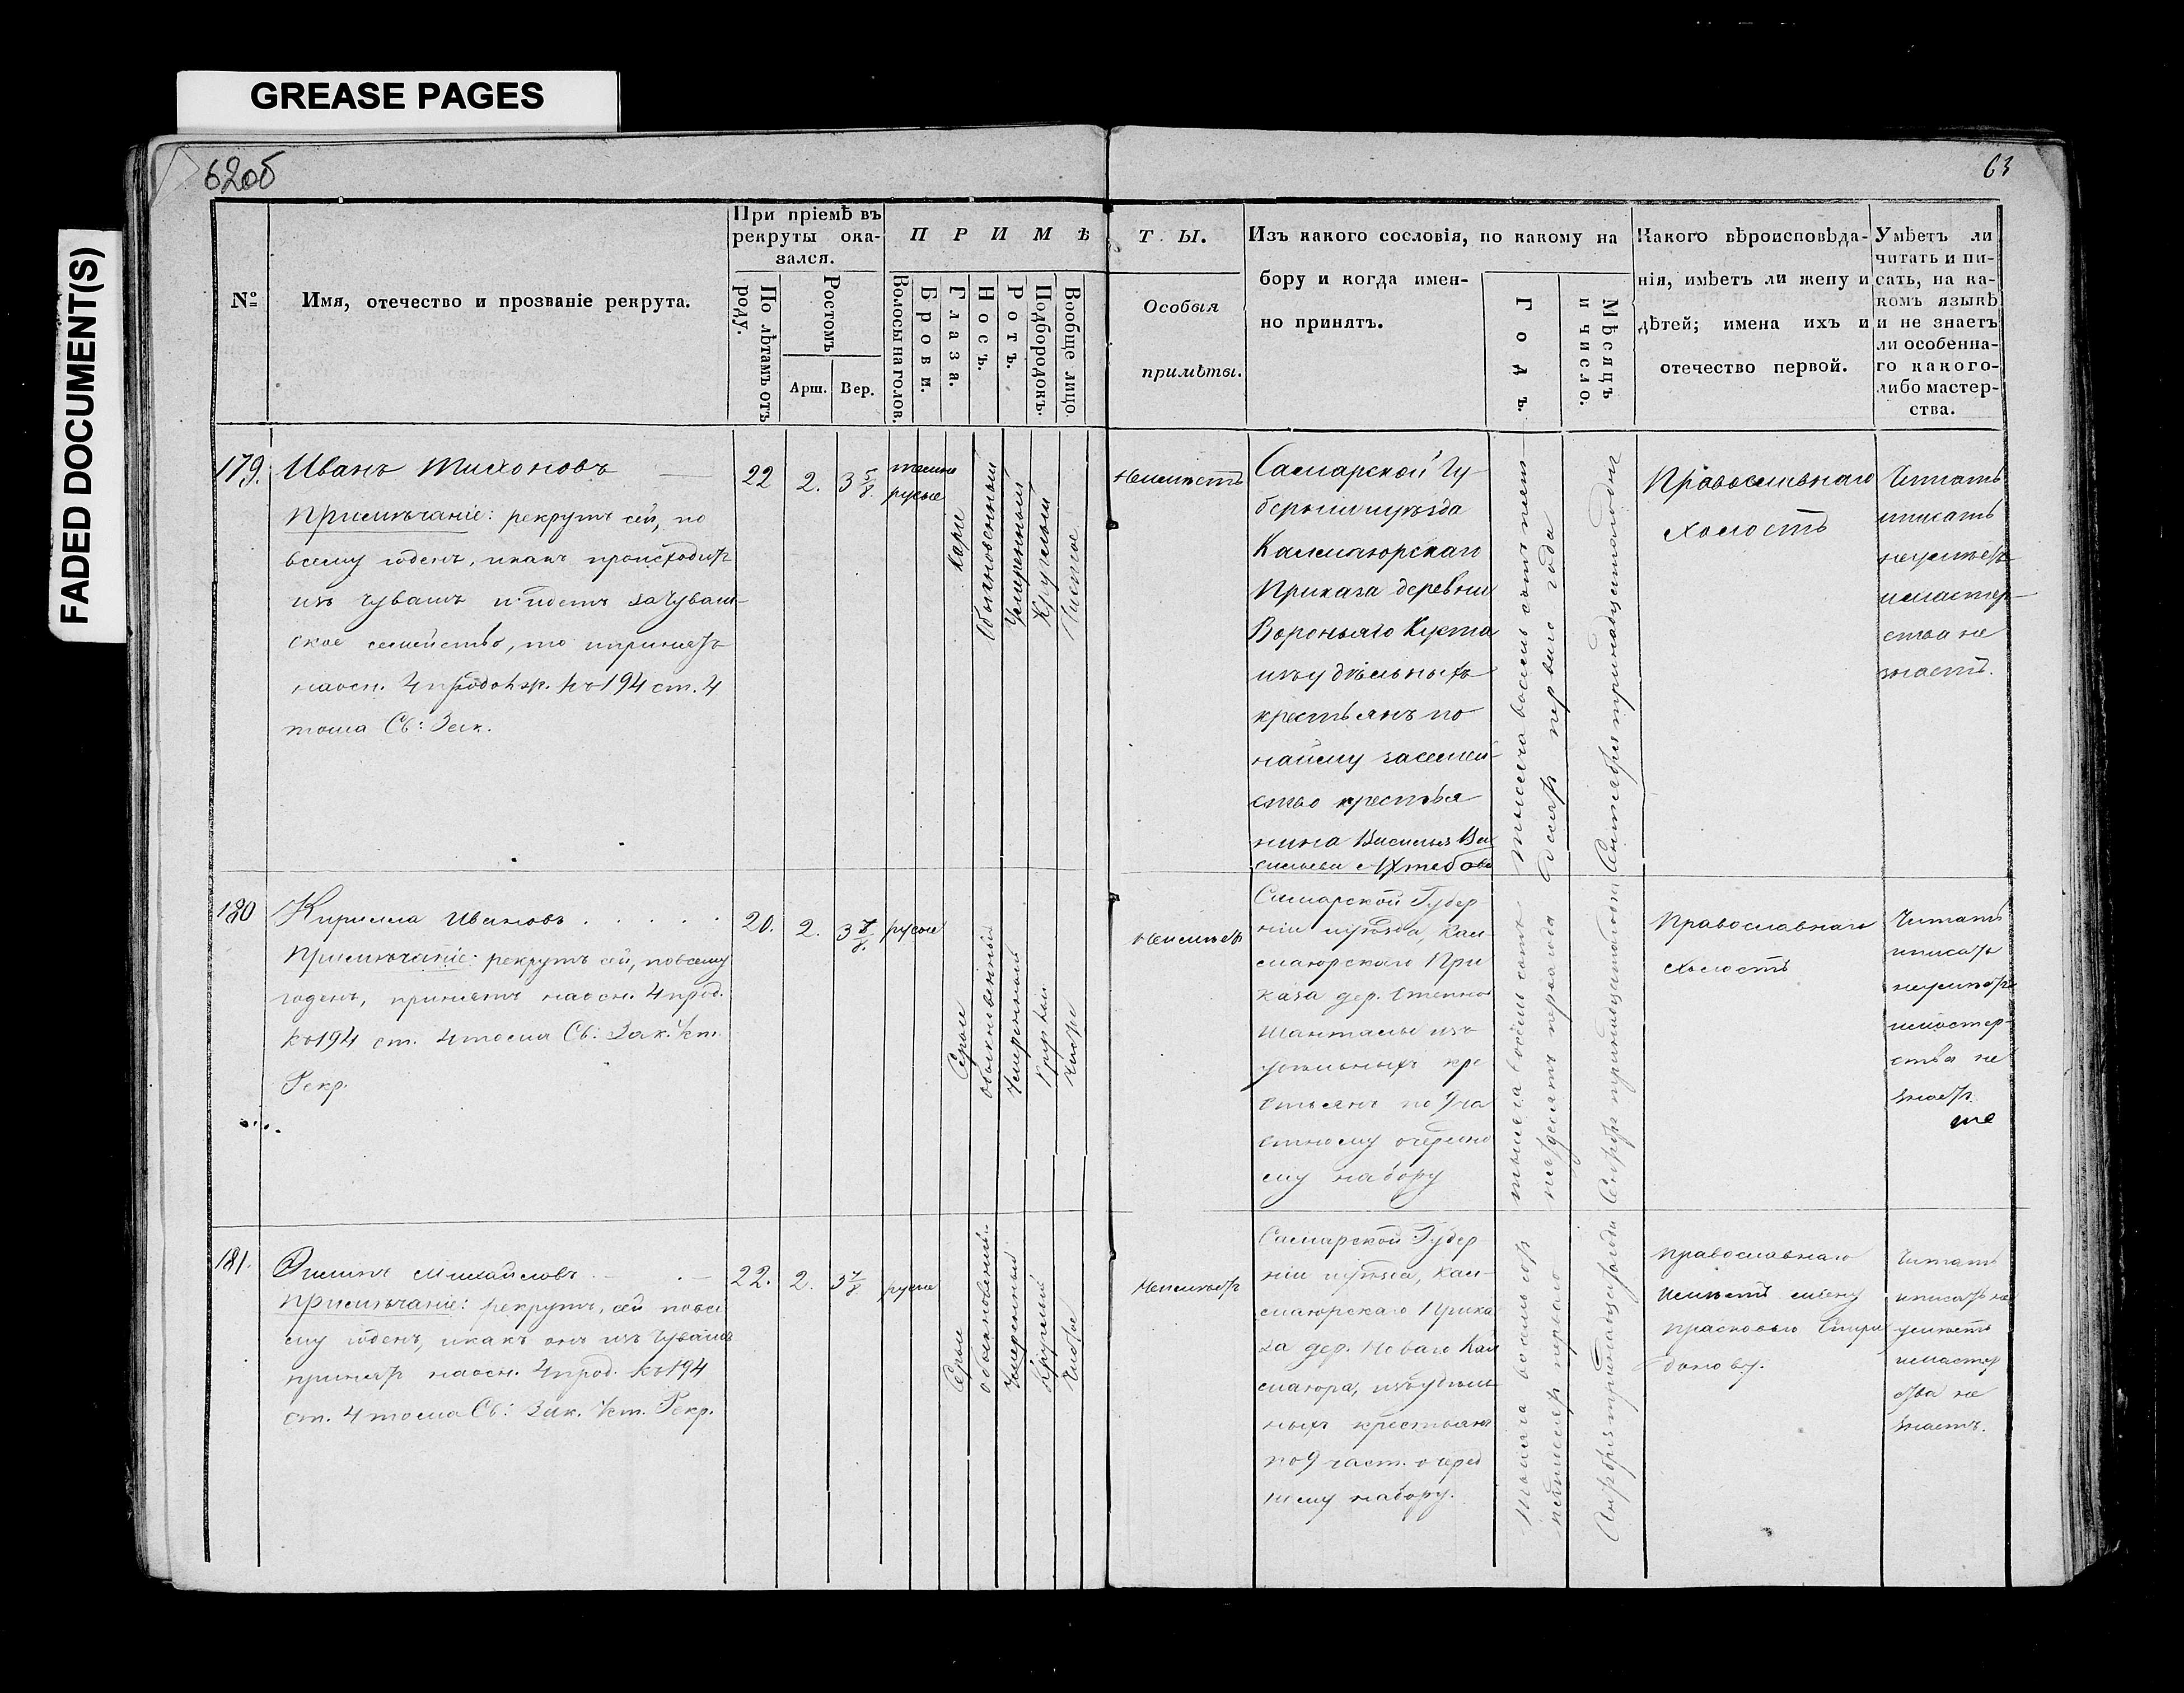 GREASE PAGES
FADED DOCUMENT(S)
62об
63
№
Имя, отечество и прозваніе рекрута.
При пріемѣ въ
рекруты ока-
зался.
По лѣтамъ отъ
роду.
Ростомъ
Арш.
Вер.
П Р И М Ѣ
Волосы на голов.
Брови.
Глаза.
Носъ.
Ротъ.
Подбородокъ.
Вообще лицо.
Т Ы.
Особыя
примѣты.
Изъ какого сословія, по какому на
бору и когда имен-
но принятъ.
Годъ.
Мѣсяцъ
и число.
Какого вѣроисповѣда-
нія, имѣетъ ли жену и
дѣтей; имена ихъ и
отечество первой.
Умѣетъ ли
читать и пи-
сать, на ка-
комъ языкѣ
и не знаетъ
ли особенна-
го какого-
либо мастер-
ства.
179.
Иванъ Тихоновъ
Примѣчаніе: рекрутъ сей, по
всему годенъ, икакъ происходитъ
изъ Чувашъ и идетъ за Чуваш-
ское семейство, то принятъ
на осн. 4 продолж. къ 194 ст. 4
тома Св: Зак.
22
2.
3 5/8.
темно
русые
Карие
Обыкновенный
Умеренный
Круглый
Чистое
Неимѣетъ
Самарской Гу-
берніи иуѣзда
Калмаюрскаго
Приказа деревни
Вороньяго Куста
изъ удѣльныхъ
крестьянъ по
найму за семей-
ство крестья
нина Василья Ва
сильева Ахтебова
Тысяча восемь сотъ пять
десятъ перваго года
Сентября тринадцатаго дня
Православнаго
холостъ
Читать
иписать
неумѣетъ
имастер-
ства не
знаетъ.
180
Кирилла Ивановъ
Примѣчаніе: рекрутъ сей, повсему
годенъ, принятъ на осн. 4 прод.
къ 194 ст. 4 тома Св: Зак. Уст.
Рекр.
20.
2.
3 7/8.
русые
Серые
обыкновенный
Умеренный
Круглый
Чистое
Неимѣетъ
Самарской Губер
ніи иуѣзда, Кал-
маюрскаго При
каза дер. Степной
Шанталы изъ
удѣльныхъ кре
стьянъ по 9 ча
стному очередно
му набору
тысяча восемь сотъ
пятьдесятъ перваго года
Сентября тринадцатаго дня
Православнаго
холостъ
Читать
иписать
неумѣетъ
имастер-
ства не
знаетъ
181.
Филипъ Михайловъ
Примѣчаніе: рекрутъ, сей повсе
му годенъ, икакъ онъ изъ Чувашъ
принятъ на осн. 4 прод. къ 194
ст. 4 тома Св: Зак. Уст. Рекр.
22.
2.
русые
Серые
обыкновенный
Умеренный
Круглый
Чистое
Неимѣетъ
Самарской Губер
ніи иуѣзда, Кал-
маюрскаго Прика
за дер. Новаго Кал
маюра, изъ удѣль-
ныхъ крестьянъ
по 9 част. очеред
ному набору.
Тысяча восемьсотъ
пятьдесятъ перваго
Сентября тринадцатаго дня
православнаго
имѣетъ жену
Прасковью Спири
донову.
Читать
иписать не
умѣетъ
имастер
ства не
знаетъ.